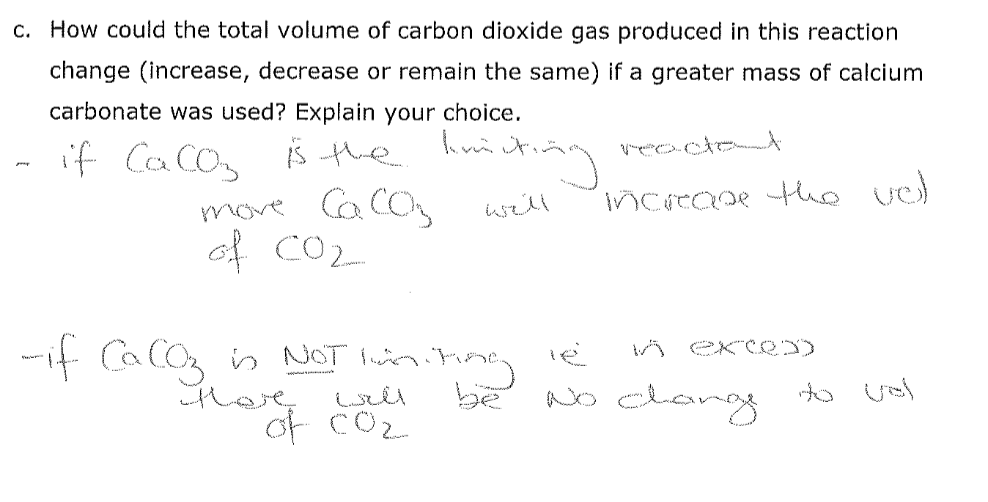 c. How could the total volume of carbon dioxide gas produced in this reaction
change (increase, decrease or remain the same) if a greater mass of calcium
carbonate was used? Explain your choice.
- if CaCO₃ is the limiting reactant
more CaCO₃ will increase the vol
of CO₂
- if CaCO₃ is NOT limiting ie in excess
there will be No change to vol
of CO₂